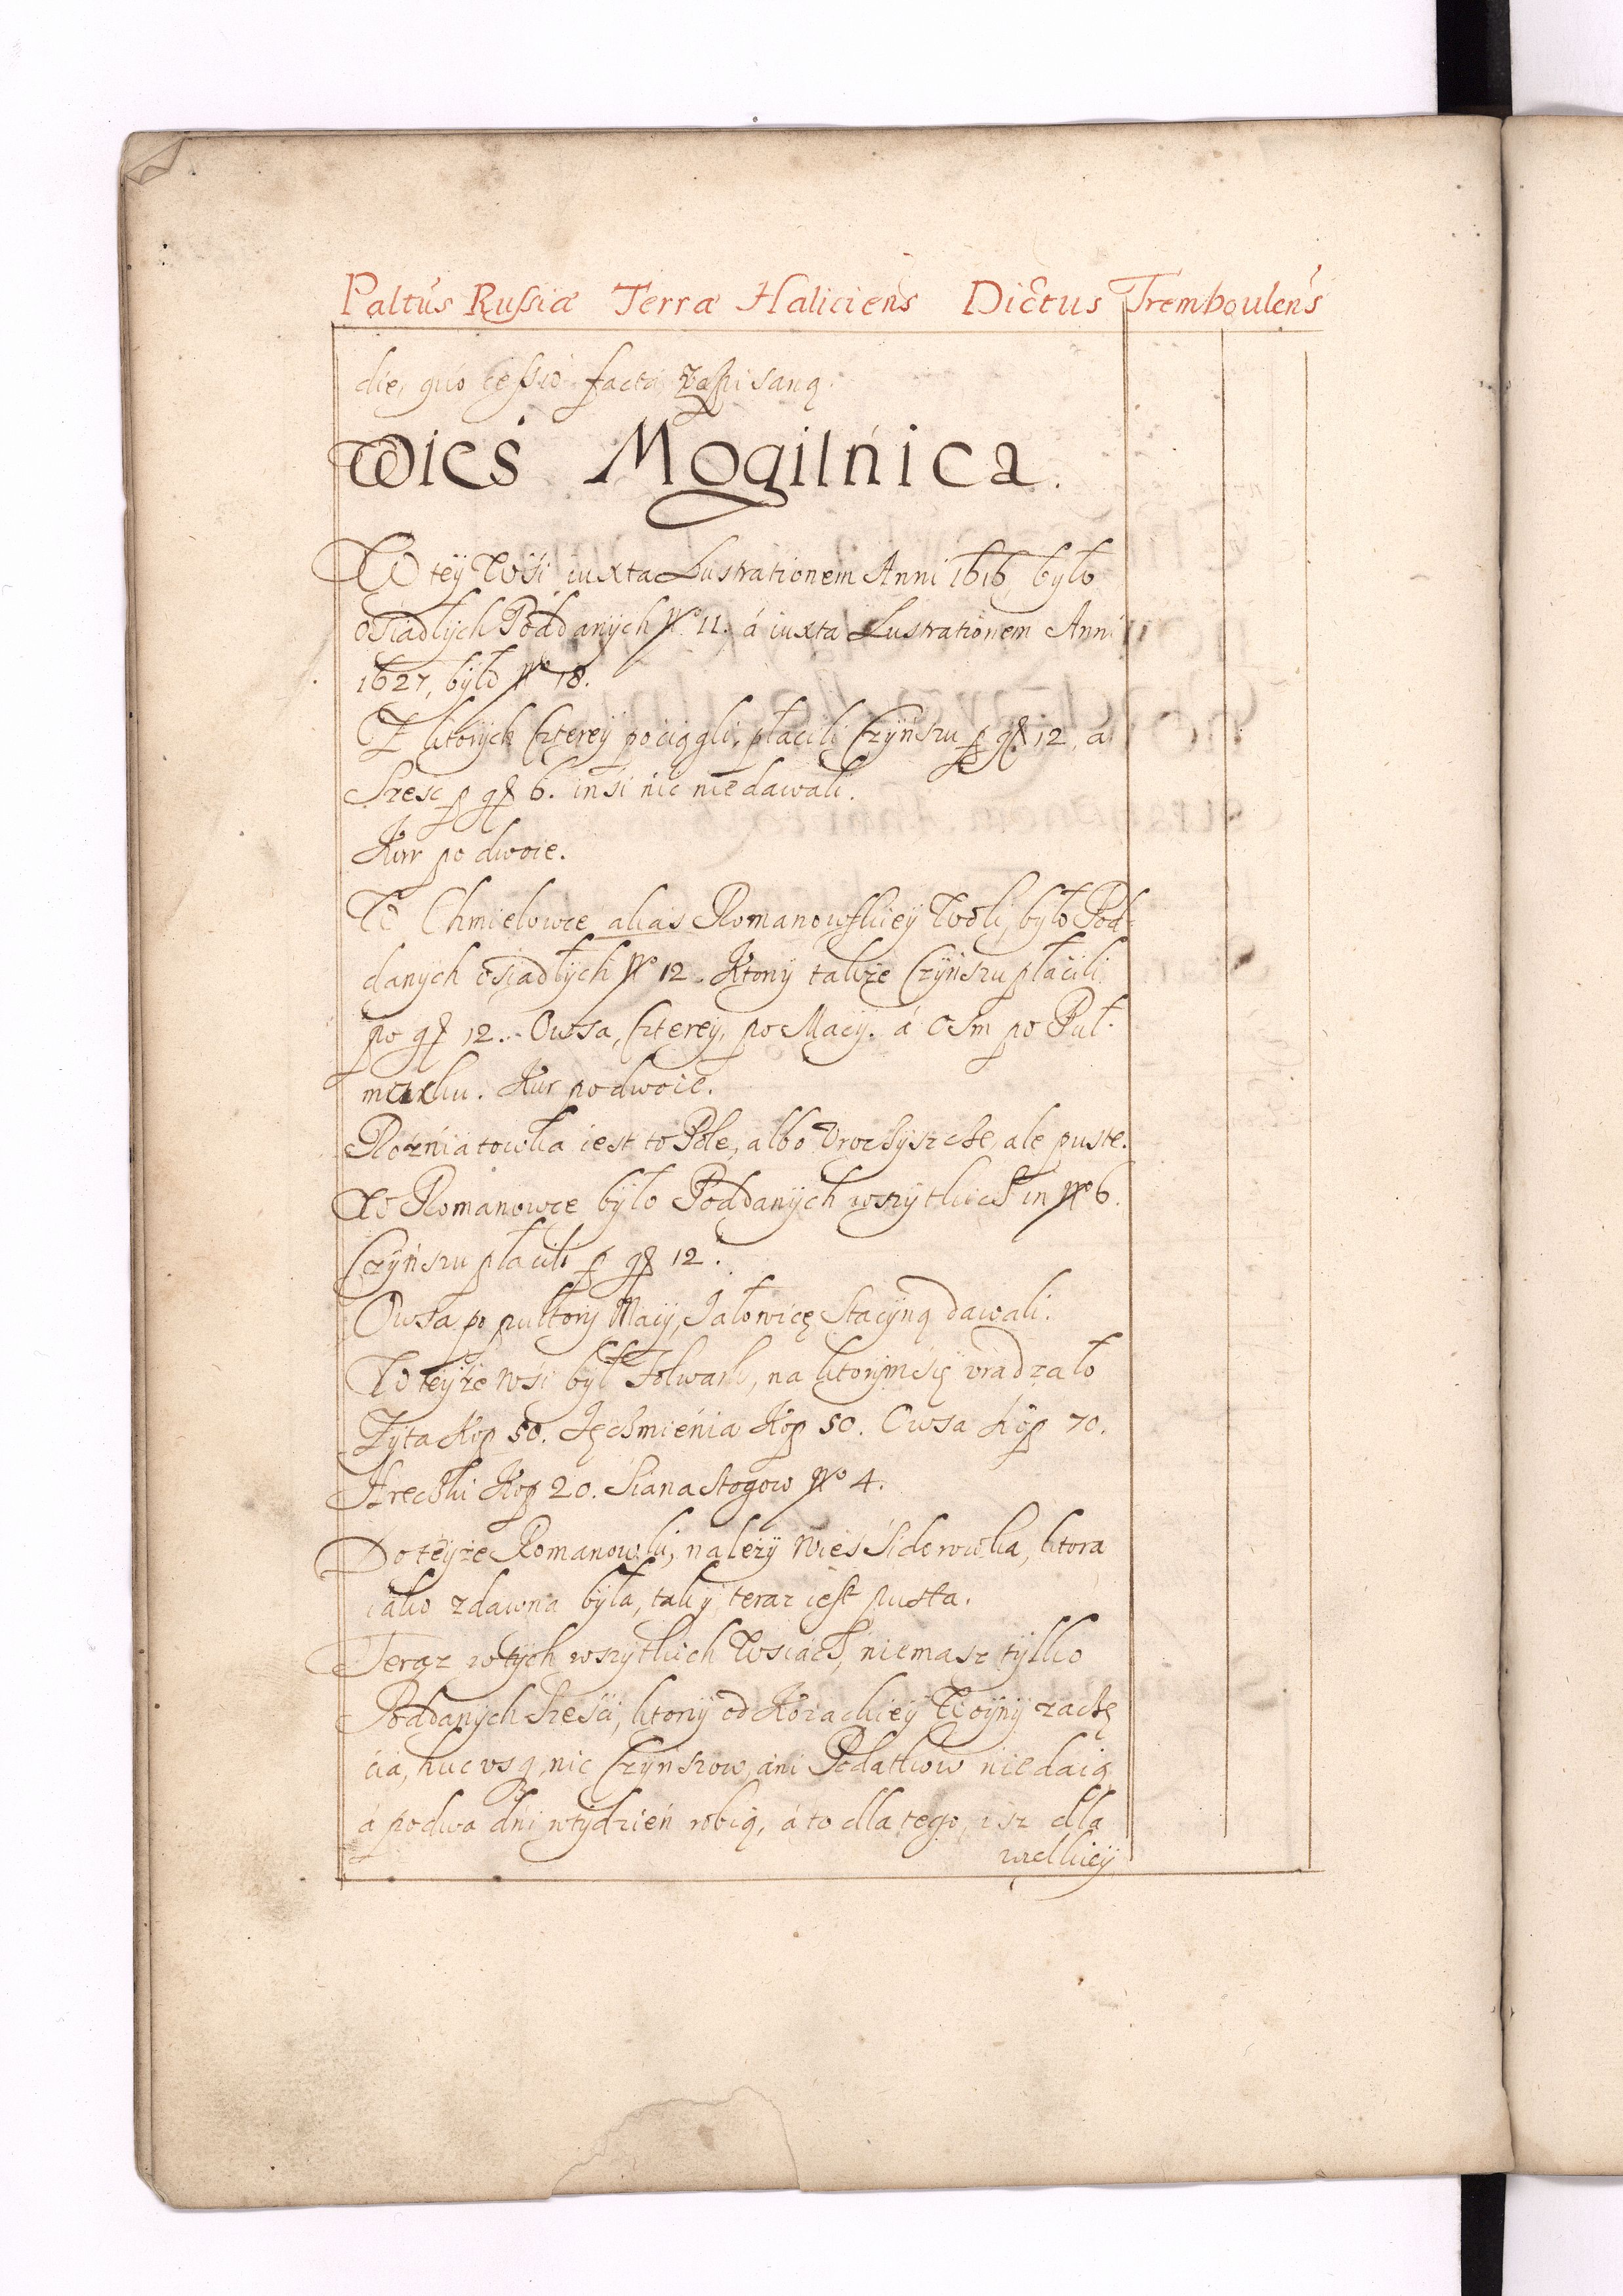 Paltus Russiæ Terræ Haliciens Dictus Tremboulens
die, quo cessio facta, zapisaną.
Wieś Mogilńica.
W teÿ Wśi iuxta Lustrationem Anni 1616, było
osiadłÿch Poddanÿch No 11. á iuxta Lustrationem Anni
1627, bÿło No 18.
Z ktorÿch Czterеÿ pociągli, płacilj Czÿńszu p gʒ 12, a
Szesc p gʒ 6. inśi nic niedawali.
Kur po dwoie.
W Chmielowce alias Romanowskieÿ Wolj, było Pod-
danÿch osiadłÿch No 12. Ktorÿ także Czÿńszu płacili
po gʒ 12. Owsa, Czterеÿ, po Macÿ. á Osm po Puł-
maczku. Kur podwoie.
Rozńiatowka iest to Pole, albo Vroczÿszcze, ale puste.
W Romanowce bÿło Poddanÿch wszÿtkich in No 6.
Czÿńszu płacili p gʒ 12.
Owsa po pułtorÿ Macÿ, Jałowicę Stacÿną dawali.
W teÿże wśi bÿł Folwark, na ktorÿm się vradzało
Zÿta Kop 50. Jęczmieńia Kop 50. Owsa Kop 70.
Hreczki Kop 20. Siana Stogow No 4.
Do teÿże Romanowki, należÿ Wieś Sidorowka, ktora
iako zdawna bÿła, tak ÿ teraz iest pusta.
Teraz w tÿch wszÿtkich Wsiach, niemasz tÿlko
Poddanÿch Sześći, ktorÿ od Kozackieÿ Woÿnÿ zaczę
ćia, huc vsq, nic Czÿnszow, ani Podatkow niedaią,
á po dwa dńi w tÿdzień robią, á to dla tego, isz dla
wielkieÿ